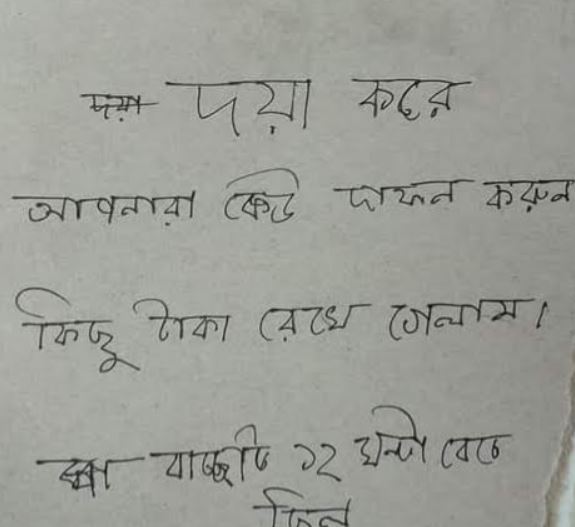 দয়া করে
আপনারা কেউ দাফন করুন
কিছু টাকা রেখে গেলাম।
বাচ্চাটি ১২ ঘন্টা বেচে
ছিল